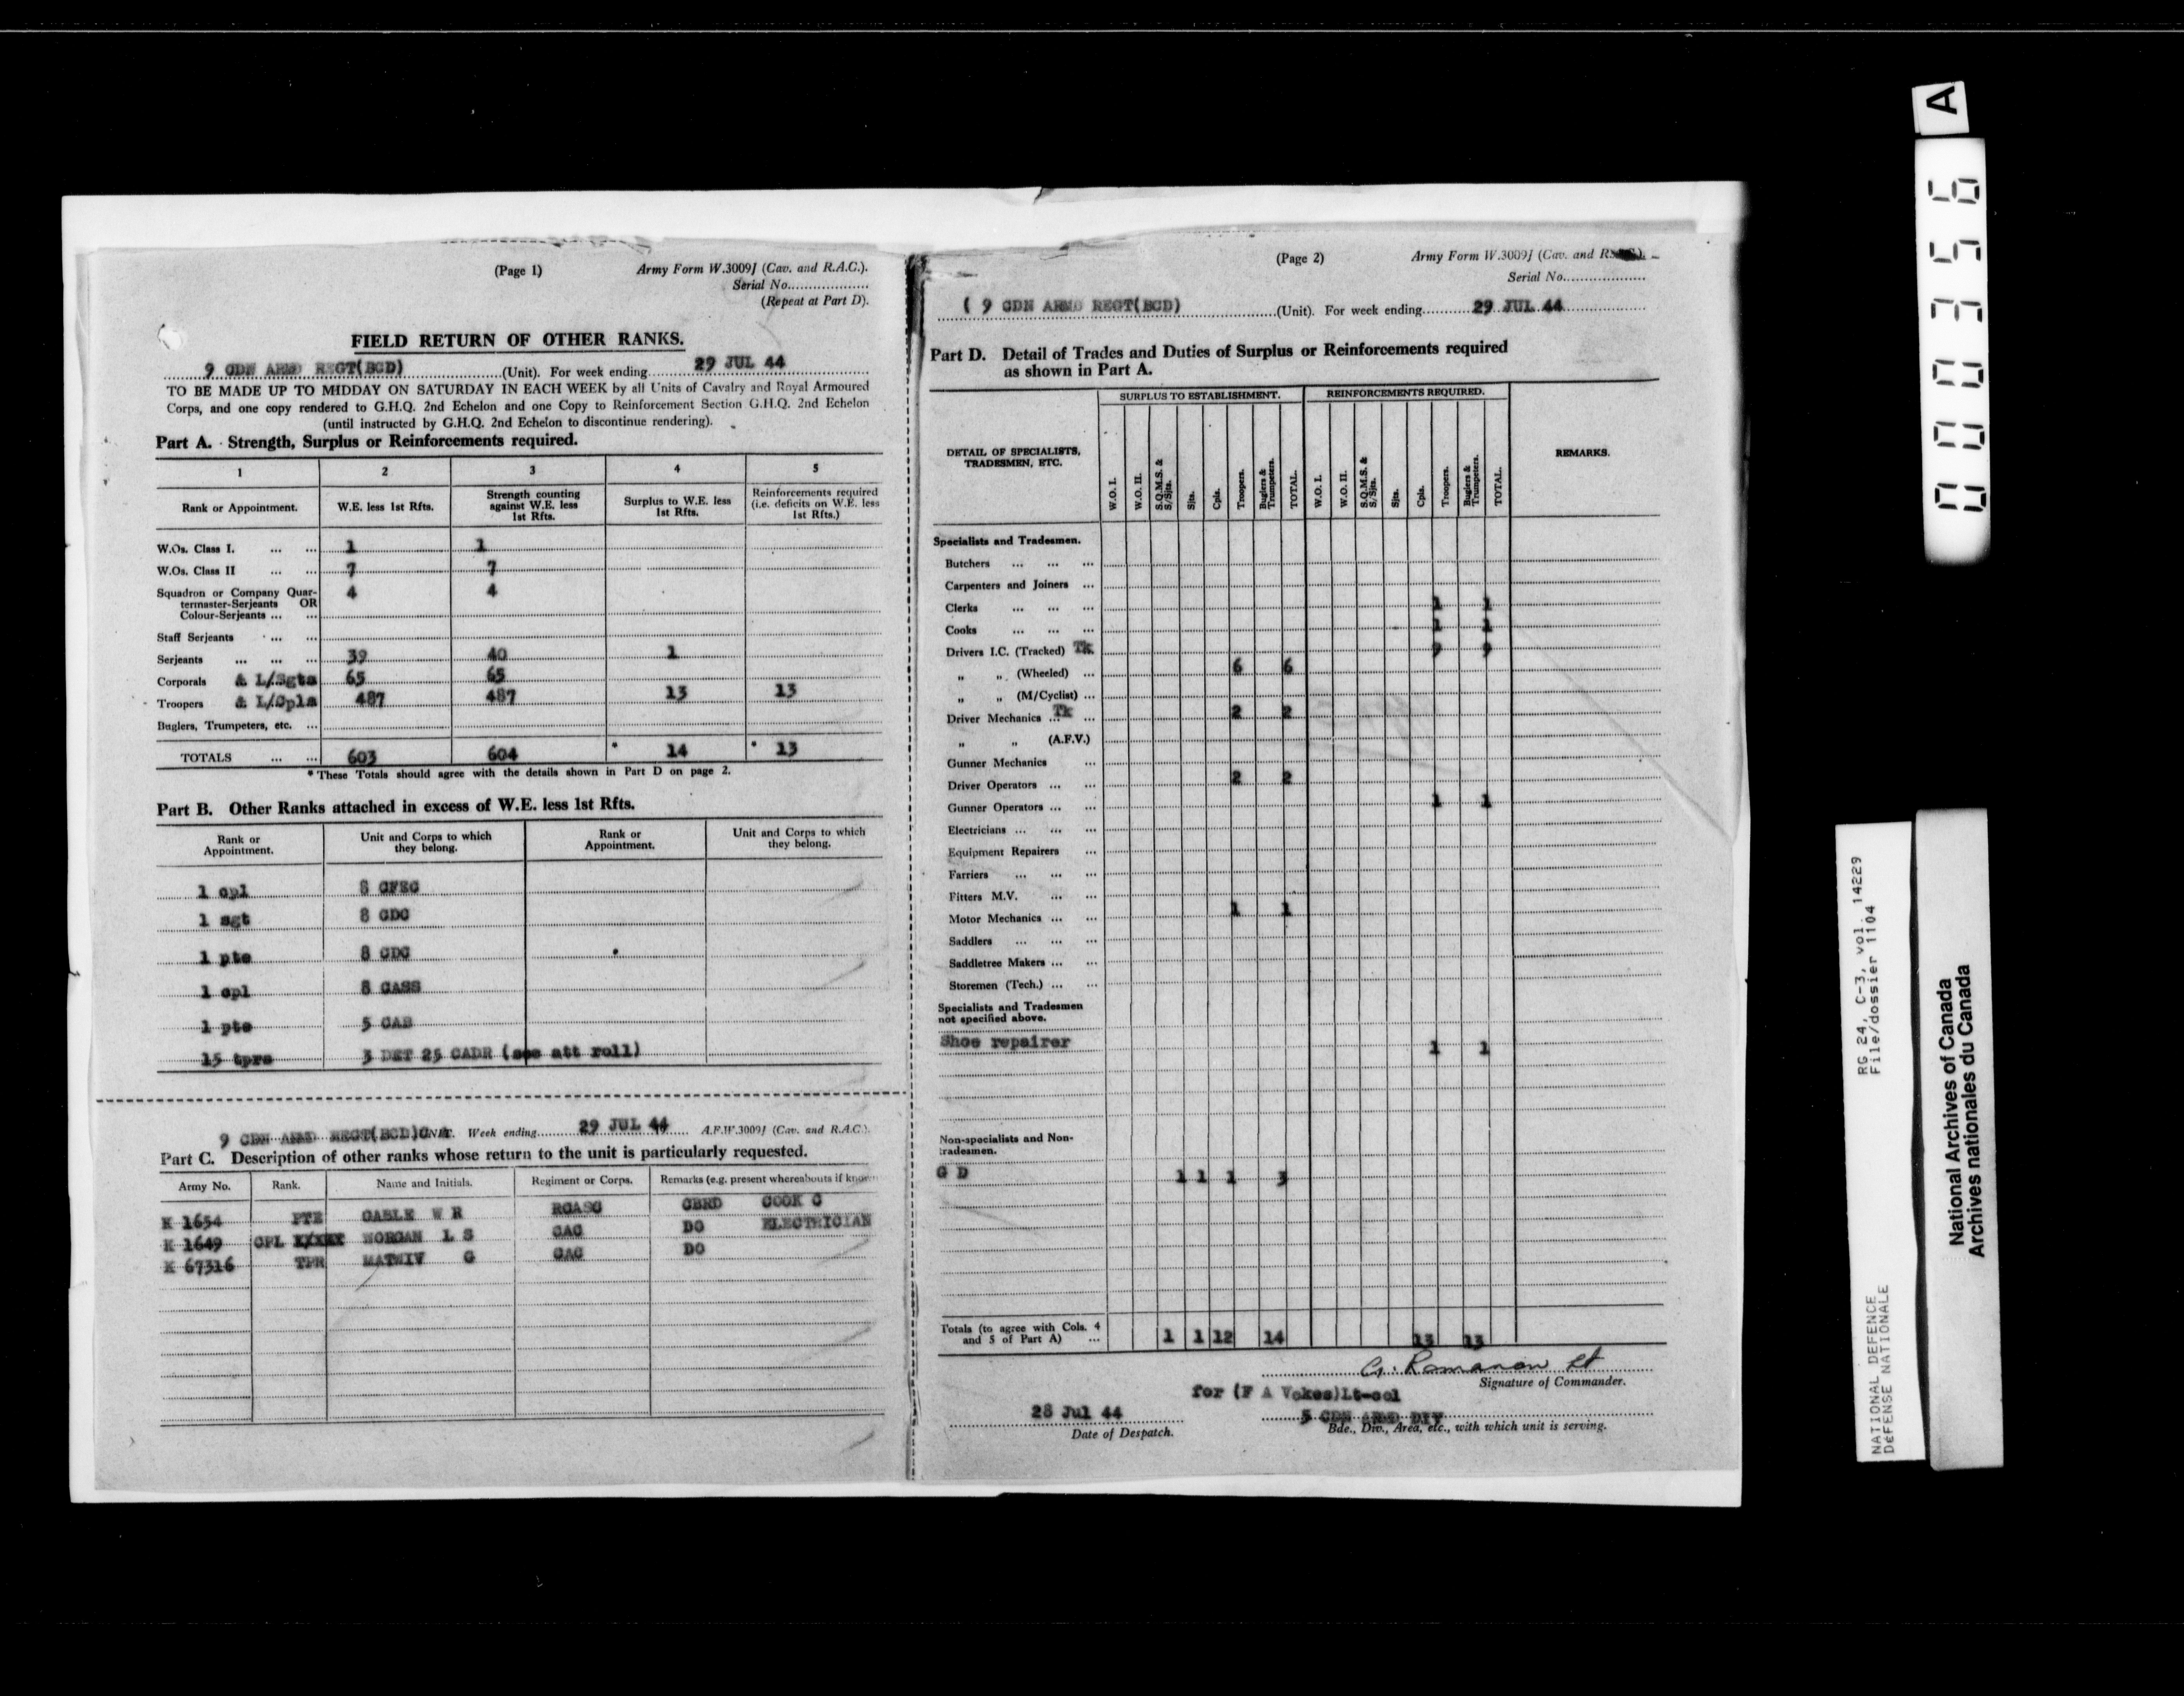 (Page 1) Army Form W.3009J (Cav. and R.A.C.).
Serial No...................
(Repeat at Part D).
FIELD RETURN OF OTHER RANKS.
9 CDN ARMD REGT(BCD) (Unit). For week ending 29 JUL 44
TO BE MADE UP TO MIDDAY ON SATURDAY IN EACH WEEK by all Units of Cavalry and Royal Armoured
Corps, and one copy rendered to G.H.Q. 2nd Echelon and one Copy to Reinforcement Section G.H.Q. 2nd Echelon
(until instructed by G.H.Q. 2nd Echelon to discontinue rendering).
Part A. Strength, Surplus or Reinforcements required.
1 2 3 4 5
Rank or Appointment. W.E. less 1st Rfts. Strength counting against W.E. less 1st Rfts. Surplus to W.E. less 1st Rfts. Reinforcements required (i.e. deficits on W.E. less 1st Rfts.)
W.Os. Class I. ... ... 1 1
W.Os. Class II ... ... 7 7
Squadron or Company Quar- 4 4
termaster-Serjeants OR
Colour-Serjeants ... ...
Staff Serjeants ... ...
Serjeants ... ... ... 39 40 1
Corporals & L/Sgts 65 65
Troopers & L/Cpls 487 487 13 13
Buglers, Trumpeters, etc. ...
TOTALS ... ... 603 604 * 14 * 13
* These Totals should agree with the details shown in Part D on page 2.
Part B. Other Ranks attached in excess of W.E. less 1st Rfts.
Rank or Appointment. Unit and Corps to which they belong. Rank or Appointment. Unit and Corps to which they belong.
1 cpl 8 CFSC
1 sgt 8 CDC
1 pte 8 CDC
1 cpl 8 CASS
1 pte 5 CAB
15 tprs 3 DET 25 CADR (see att roll)
9 CDN ARMD REGT(BCD) Week ending 29 JUL 44 A.F.W.3009J (Cav. and R.A.C.).
Part C. Description of other ranks whose return to the unit is particularly requested.
Army No. Rank. Name and Initials. Regiment or Corps. Remarks (e.g. present whereabouts if known
K 1654 PTE GABLE W R RCASC CBRD COOK C
K 1649 CPL MORGAN L S CAC DO ELECTRICIAN
K 67316 TPR MATWIV G CAC DO
(Page 2) Army Form W.3009J (Cav. and R.A.C.).
Serial No...................
( 9 CDN ARMD REGT(BCD) (Unit). For week ending 29 JUL 44
Part D. Detail of Trades and Duties of Surplus or Reinforcements required
as shown in Part A.
SURPLUS TO ESTABLISHMENT. REINFORCEMENTS REQUIRED.
DETAIL OF SPECIALISTS, TRADESMEN, ETC. W.O. I. W.O. II. S.Q.M.S. & S/Sjts. Sjts. Cpls. Troopers. Buglers & Trumpeters. TOTAL. W.O. I. W.O. II. S.Q.M.S. & S/Sjts. Sjts. Cpls. Troopers. Buglers & Trumpeters. TOTAL. REMARKS.
Specialists and Tradesmen.
Butchers ... ... ...
Carpenters and Joiners ...
Clerks ... ... ... 1 1
Cooks ... ... ... 1 1
Drivers I.C. (Tracked) Tk 9 9
„ „ (Wheeled) ... 6 6
„ „ (M/Cyclist) ...
Driver Mechanics ... Tk ... 2 2
„ „ (A.F.V.)
Gunner Mechanics ...
Driver Operators ... ... 2 2
Gunner Operators ... ... 1 1
Electricians ... ... ...
Equipment Repairers ...
Farriers ... ... ...
Fitters M.V. ... ...
Motor Mechanics ... ... 1 1
Saddlers ... ... ...
Saddletree Makers ... ...
Storemen (Tech.) ... ...
Specialists and Tradesmen
not specified above.
Shoe repairer 1 1
Non-specialists and Non-
tradesmen.
G D 1 1 1 3
Totals (to agree with Cols. 4
and 5 of Part A) ... 1 1 12 14 13 13
G. Romanow Lt
Signature of Commander.
for (F A Vokes)Lt-col
28 Jul 44 5 CDN ARMD DIV
Date of Despatch. Bde., Div., Area, etc., with which unit is serving.
A
000356
RG 24, C-3, vol. 14229
File/dossier 1104
NATIONAL DEFENCE
DÉFENSE NATIONALE
National Archives of Canada
Archives nationales du Canada